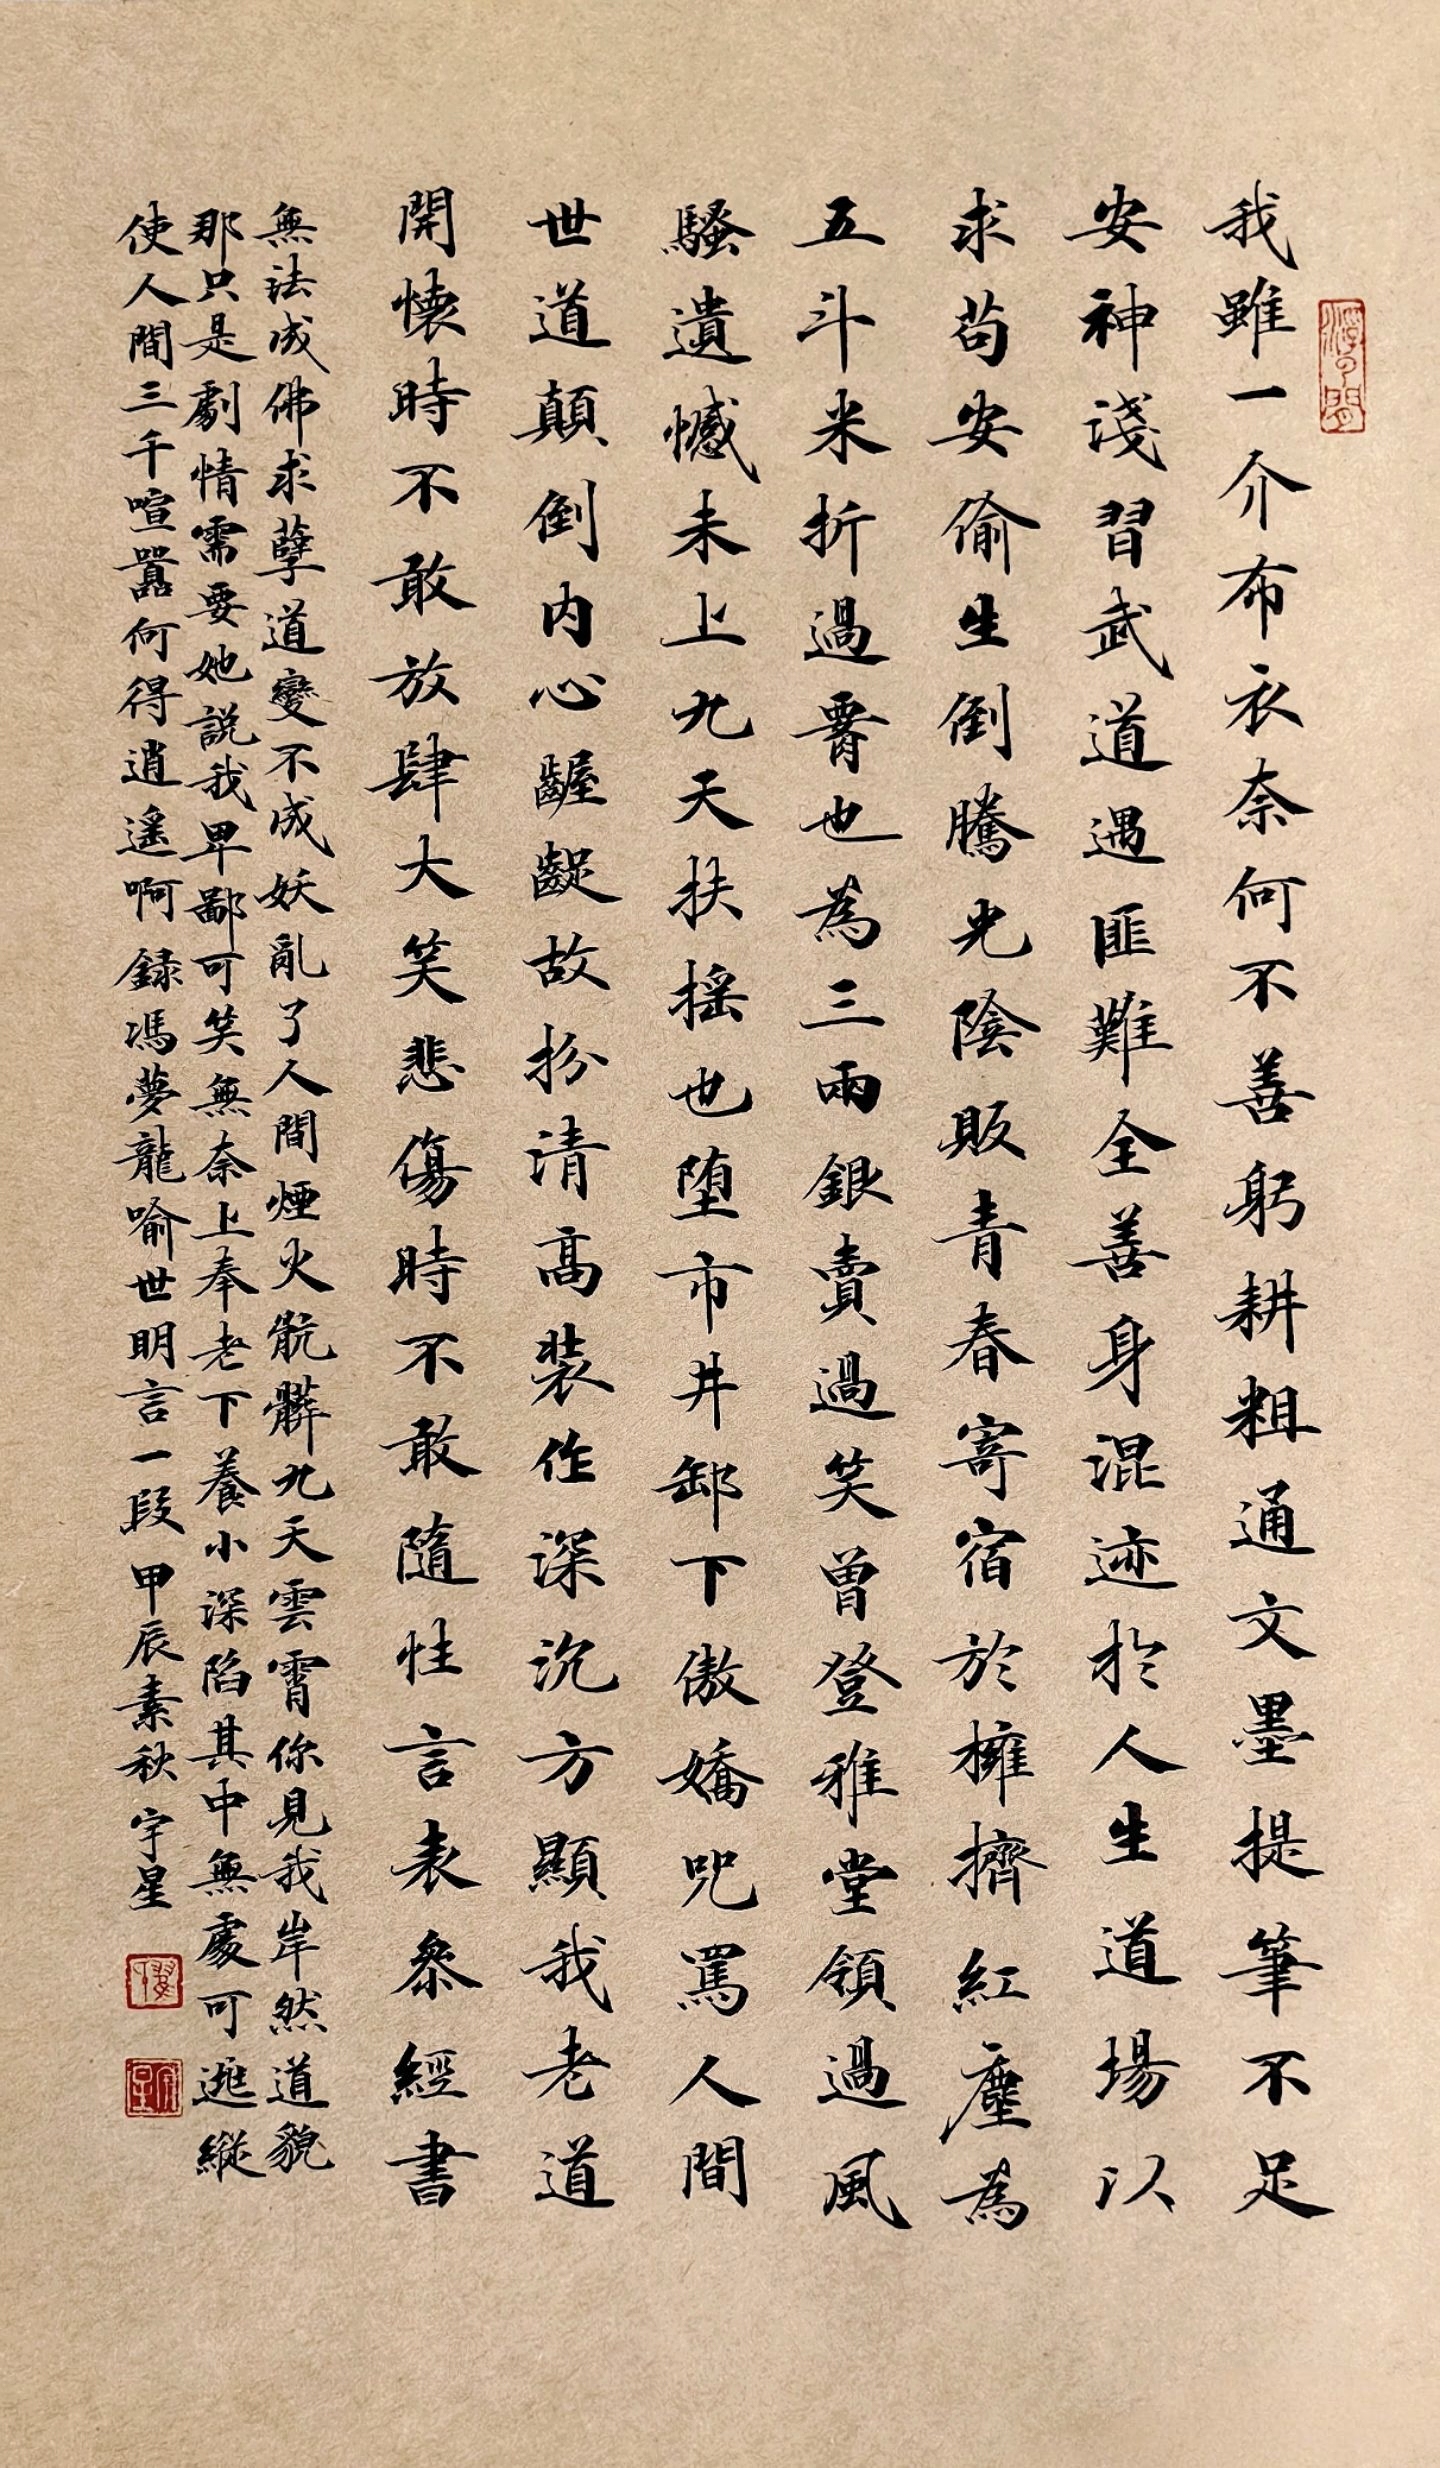 我雖一介布衣奈何不善躬耕粗通文墨提筆不足
安神淺習武道遇匪難全善身混迹於人生道場以
求苟安偷生倒騰光陰販青春寄宿於擁擠紅塵為
五斗米折過脊也為三兩銀賣過笑曾登雅堂領過風
騷遺憾未上九天扶搖也墮市井卸下傲嬌咒罵人間
世道顛倒內心齷齪故扮清高裝作深沉方顯我老道
開懷時不敢放肆大笑悲傷時不敢隨性言表叅經書
無法成佛求孽道變不成妖亂了人間煙火骯髒九天雲霄你見我岸然道貌
那只是劇情需要她說我卑鄙可笑無奈上奉老下養小深陷其中無處可逃縱
使人間三千喧囂何得逍遙啊錄馮夢龍喻世明言一段甲辰素秋宇星